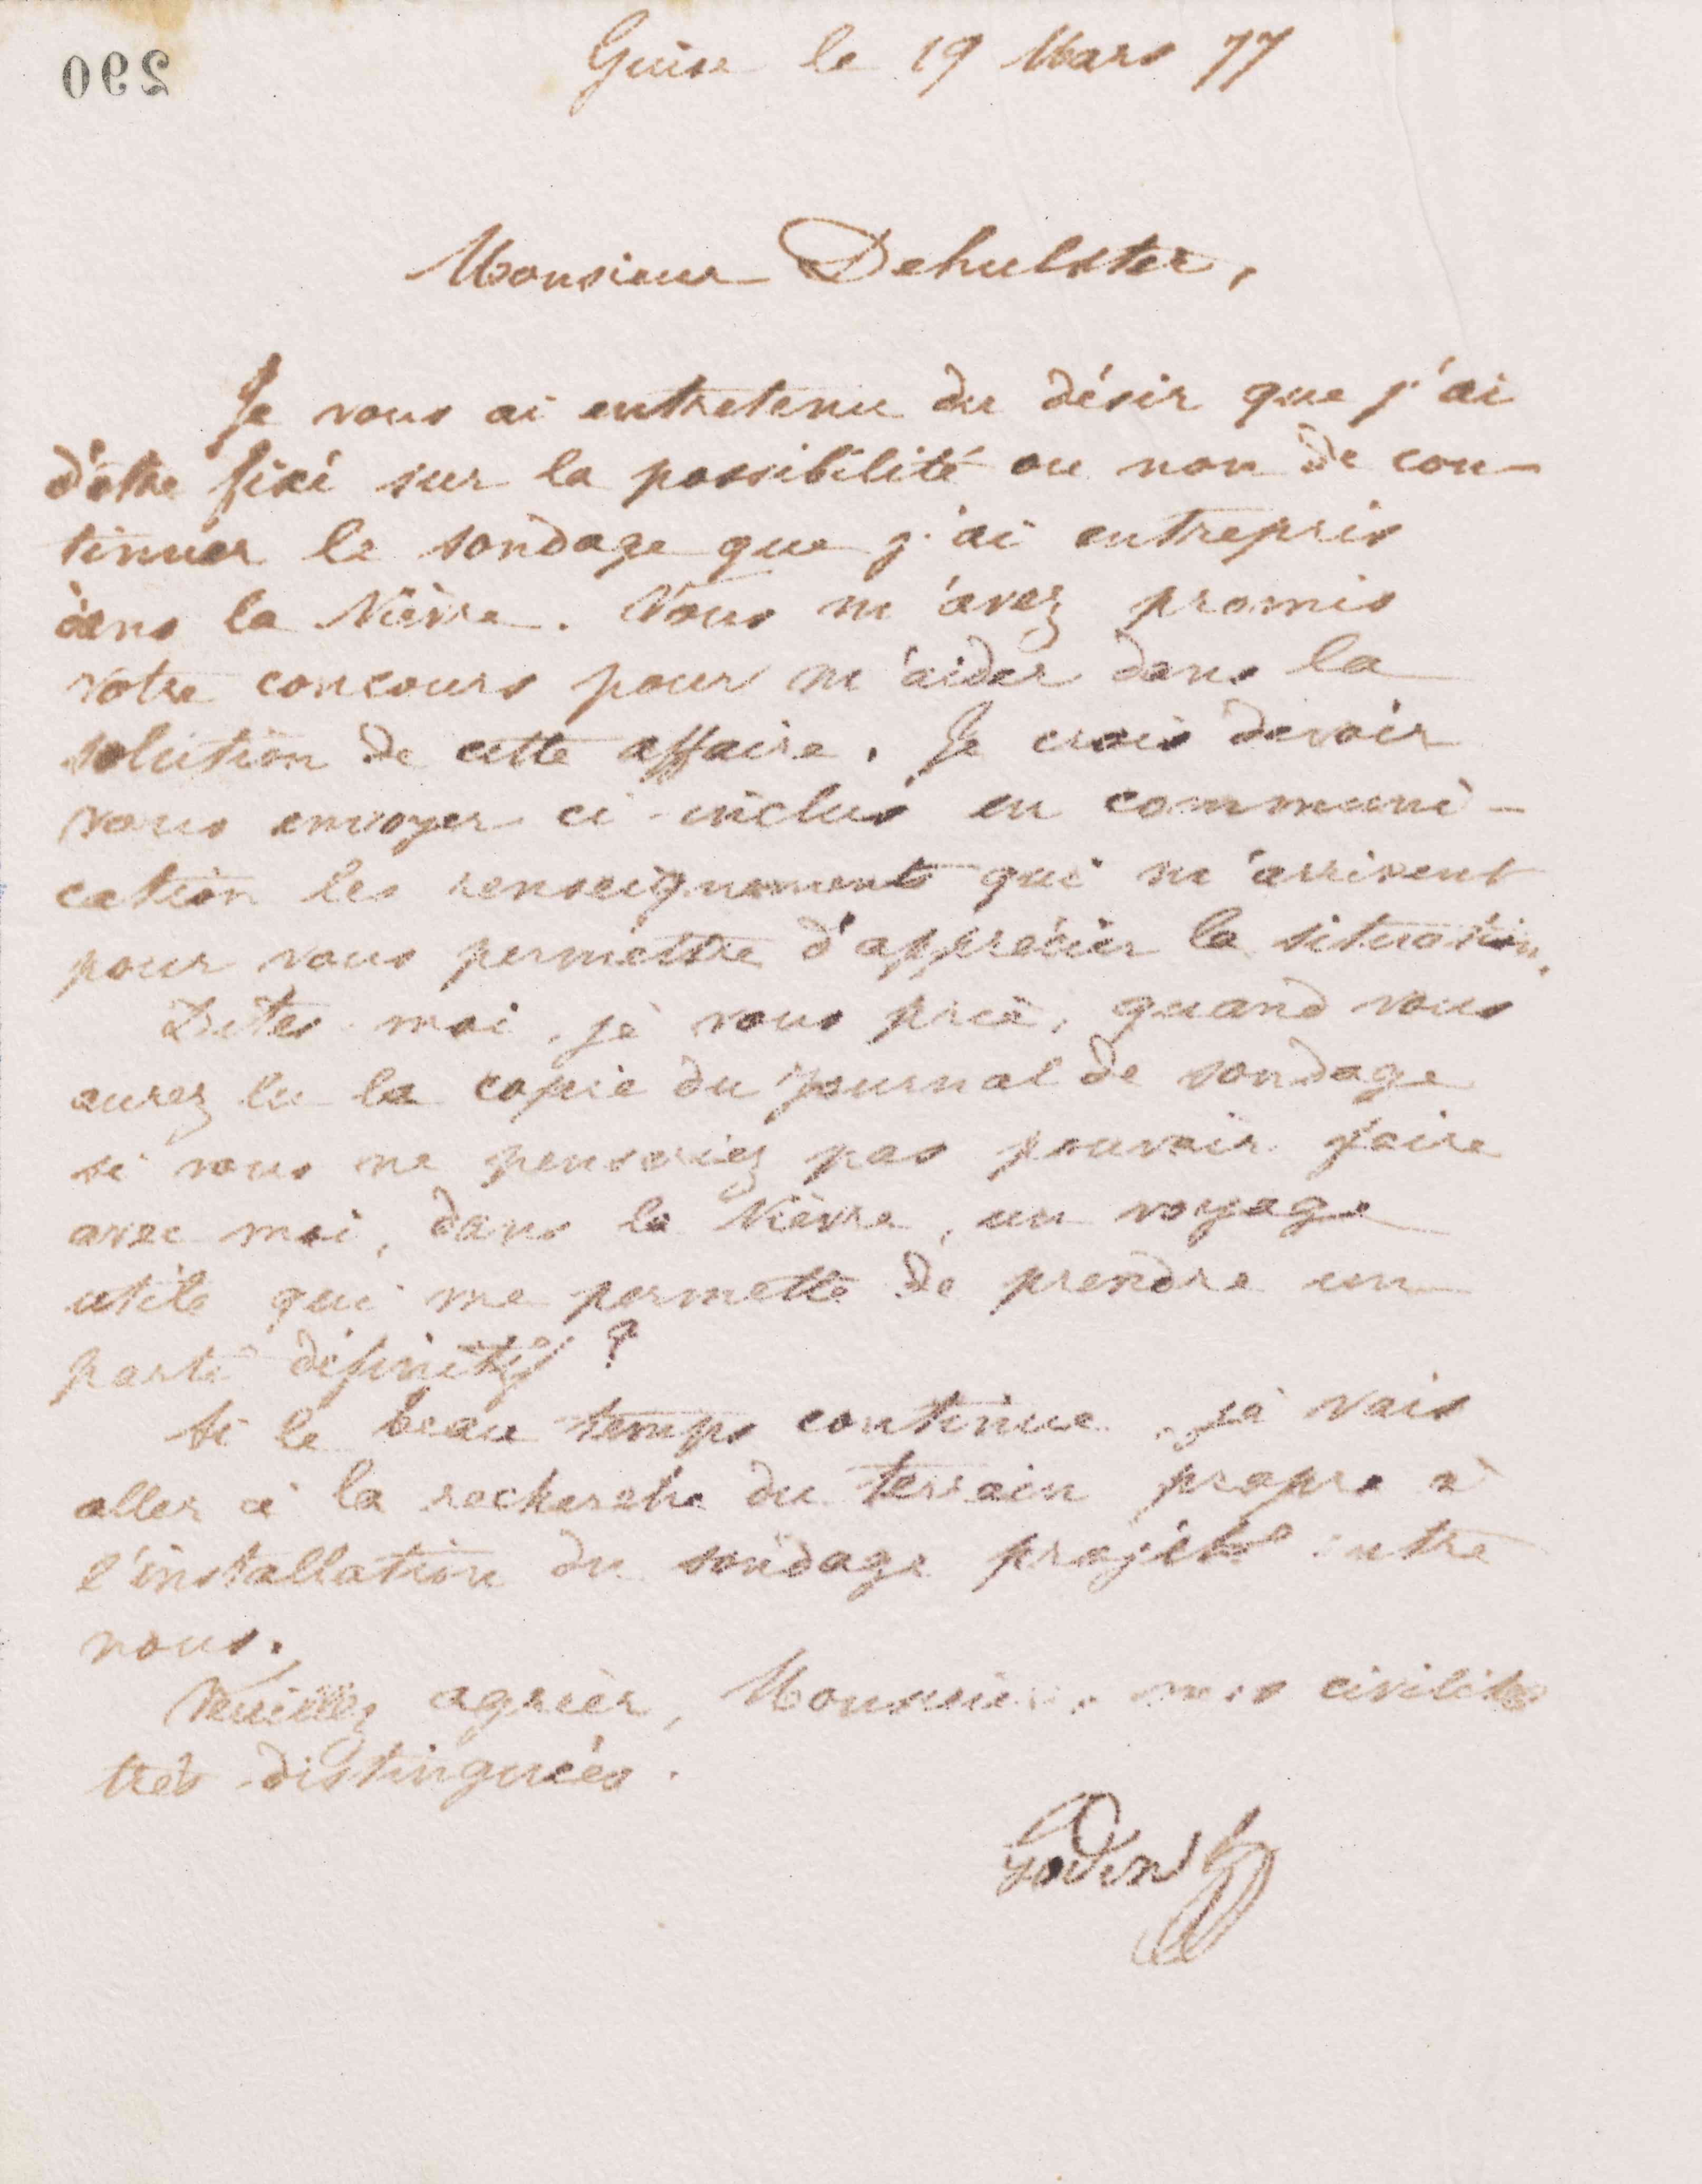 290
Guise le 19 Mars 77
Monsieur Dehulster,
Je vous ai entretenu du désir que j'ai
d'être fixé sur la possibilité ou non de con-
tinuer le sondage que j'ai entrepris
dans la Nièvre. Vous m'avez promis
votre concours pour m'aider dans la
solution de cette affaire. Je crois devoir
vous envoyer ci-inclus en communi-
cation les renseignements qui m'arrivent
pour vous permettre d'apprécier la situation.
Dites moi, je vous prie, quand vous
aurez lu la copie du journal de sondage
si vous ne penseriez pas pouvoir faire
avec moi, dans la Nièvre, un voyage
utile qui me permette de prendre un
parti définitif ?
Si le beau temps continue, je vais
aller à la recherche du terrain propre à
l'installation du sondage projeté entre
nous.
Veuillez agréer, Monsieur, mes civilités
très distinguées.
Godin